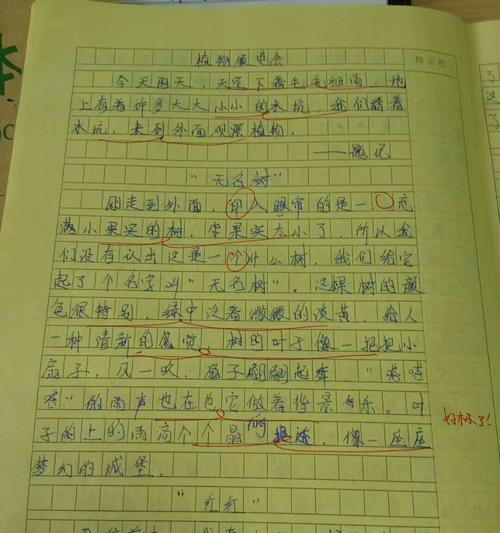 植物展览会
今天雨天，天空下着毛毛细雨，地
上有着许多大大小小的水坑，我们踏着
水坑，来到外面观察植物。
——题记
“无名树”
刚走到外面，印入眼帘的是一充
满小果实的树，果实太小了，所以我
们没有认出这是一个什么树，我们给它
起了个名字叫“无名树”。这棵树的颜
色很特别，绿中泛着微微的淡黄，给人
一种清新的感觉。树的叶子像一把把小
扇子，风一吹，扇子翩翩起舞“嗒嗒
嗒”的雨声也在为它做着背景音乐。叶
子的上的雨滴个个晶
像一座座
梦幻的城堡。
“红红”
修正栏
好极了！